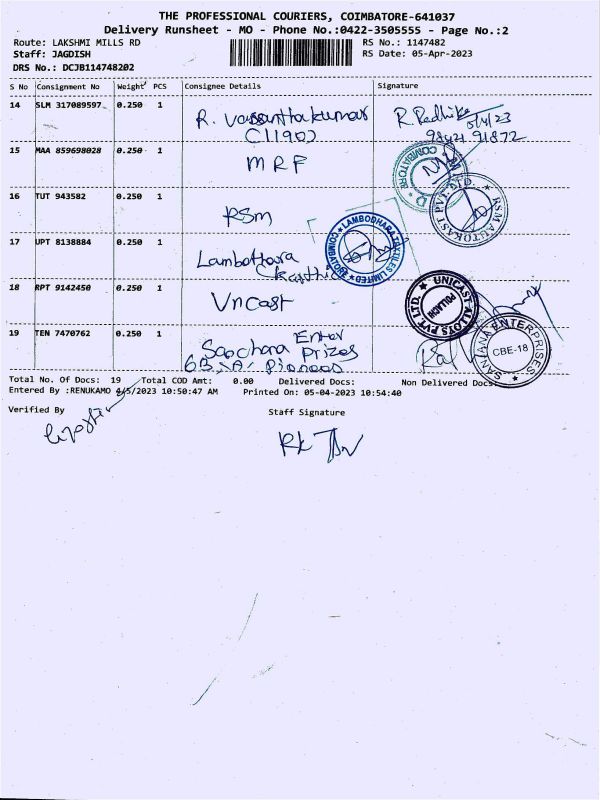 THE PROFESSIONAL COURIERS, COIMBATORE-641037
Delivery Runsheet - MO - Phone No.:0422-3505555 - Page No.:2
Route: LAKSHMI MILLS RD RS No.: 1147482
Staff: JAGDISH RS Date: 05-Apr-2023
DRS No.: DCJB114748202
S No Consignment No Weight PCS Consignee Details Signature
14 SLM 317089597 0.250 1 R. Vassanthakumar R. Radhika 5/4/23
C(190) 98421 91872
15 MAA 859698028 0.250 1 MRF
COIMBATORE
16 TUT 943582 0.250 1 RSM
RSM AUTOKAST PVT. LTD.
17 UPT 8138884 0.250 1 Lambothara
LAMBODHARA TEXTILES LIMITED COIMBATORE
18 RPT 9142450 0.250 1 Unicast
UNICAST ALLOYS PVT. LTD. POLLACHI
19 TEN 7470762 0.250 1 Enter
Prizes
SANJANA ENTERPRISES CBE-18
Total No. Of Docs: 19 Total COD Amt: 0.00 Delivered Docs: Non Delivered Docs:
Entered By :RENUKAMO 4/5/2023 10:50:47 AM Printed On: 05-04-2023 10:54:40
Verified By Staff Signature